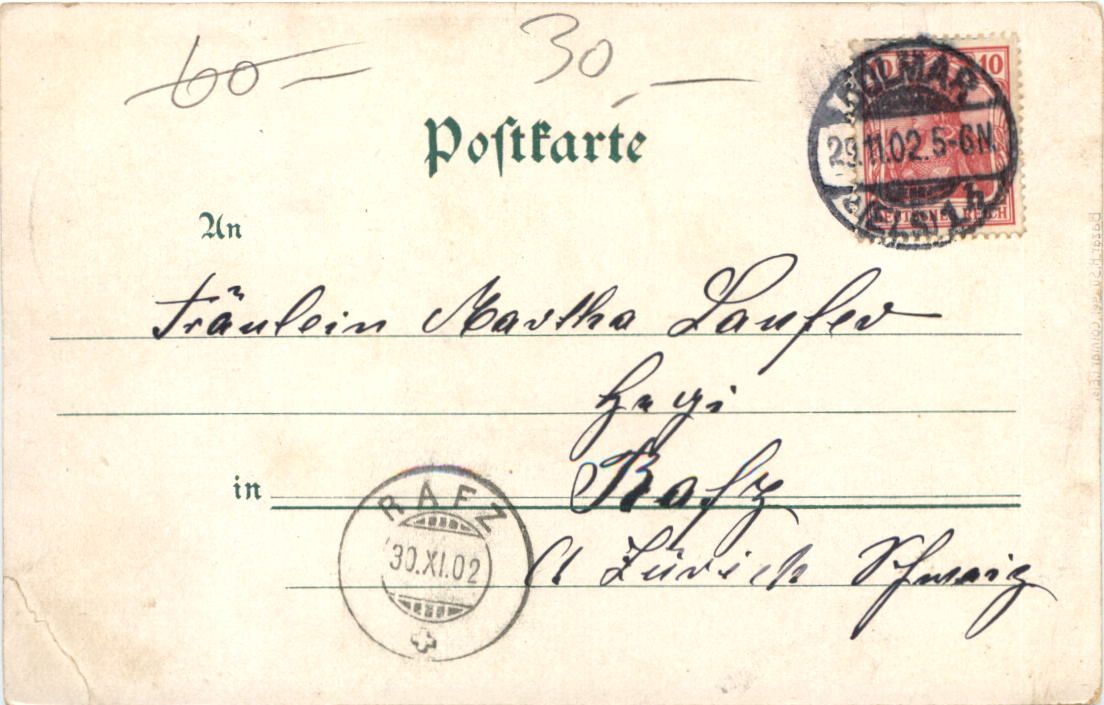 60 — 30 —
Postkarte
10 10
COLMAR
29.11.02. 5-6N.
(ELS.) 1 h
DEUTSCHES REICH
An
Fräulein Martha Laufer
Hegi
in Rafz
Ct Zürich Schweiz
RAFZ
30.XI.02